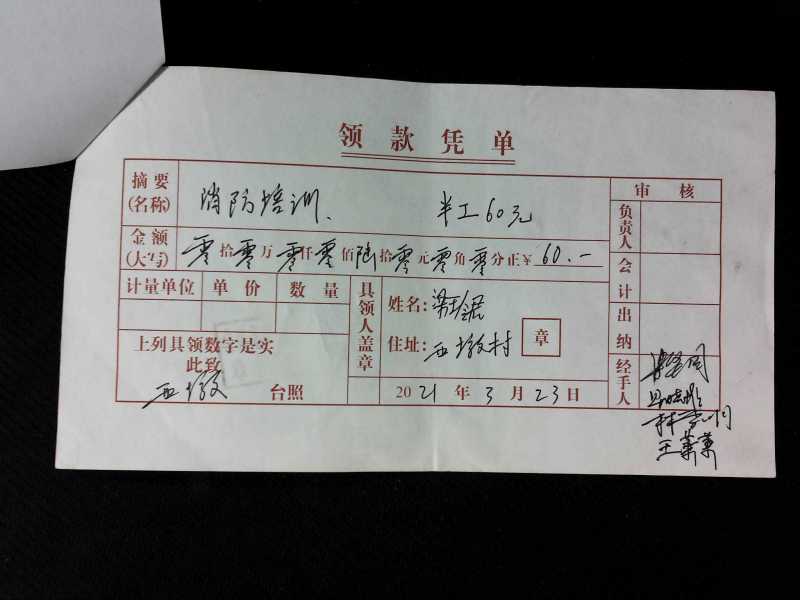 领款凭单
摘要(名称) 消防培训、 半工60元
审核
金额(大写) 零拾零万零仟零佰陆拾零元零角零分正¥ 60.—
负责人
计量单位 单价 数量
会计
具领人盖章
姓名:
住址:西墩村 章
出纳
上列具领数字是实
此致
西墩 台照
2021年3月23日
经手人
王萧萧